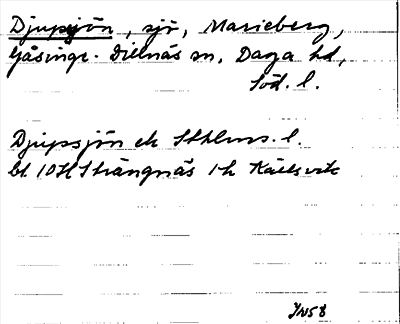 Djupsjön, sjö, Marieberg,
Gåsinge-Dillnäs sn, Daga hd,
Söd. l.
Djupsjön ek Sthlms. l.
bl 10H Strängnäs 1h Källsvik